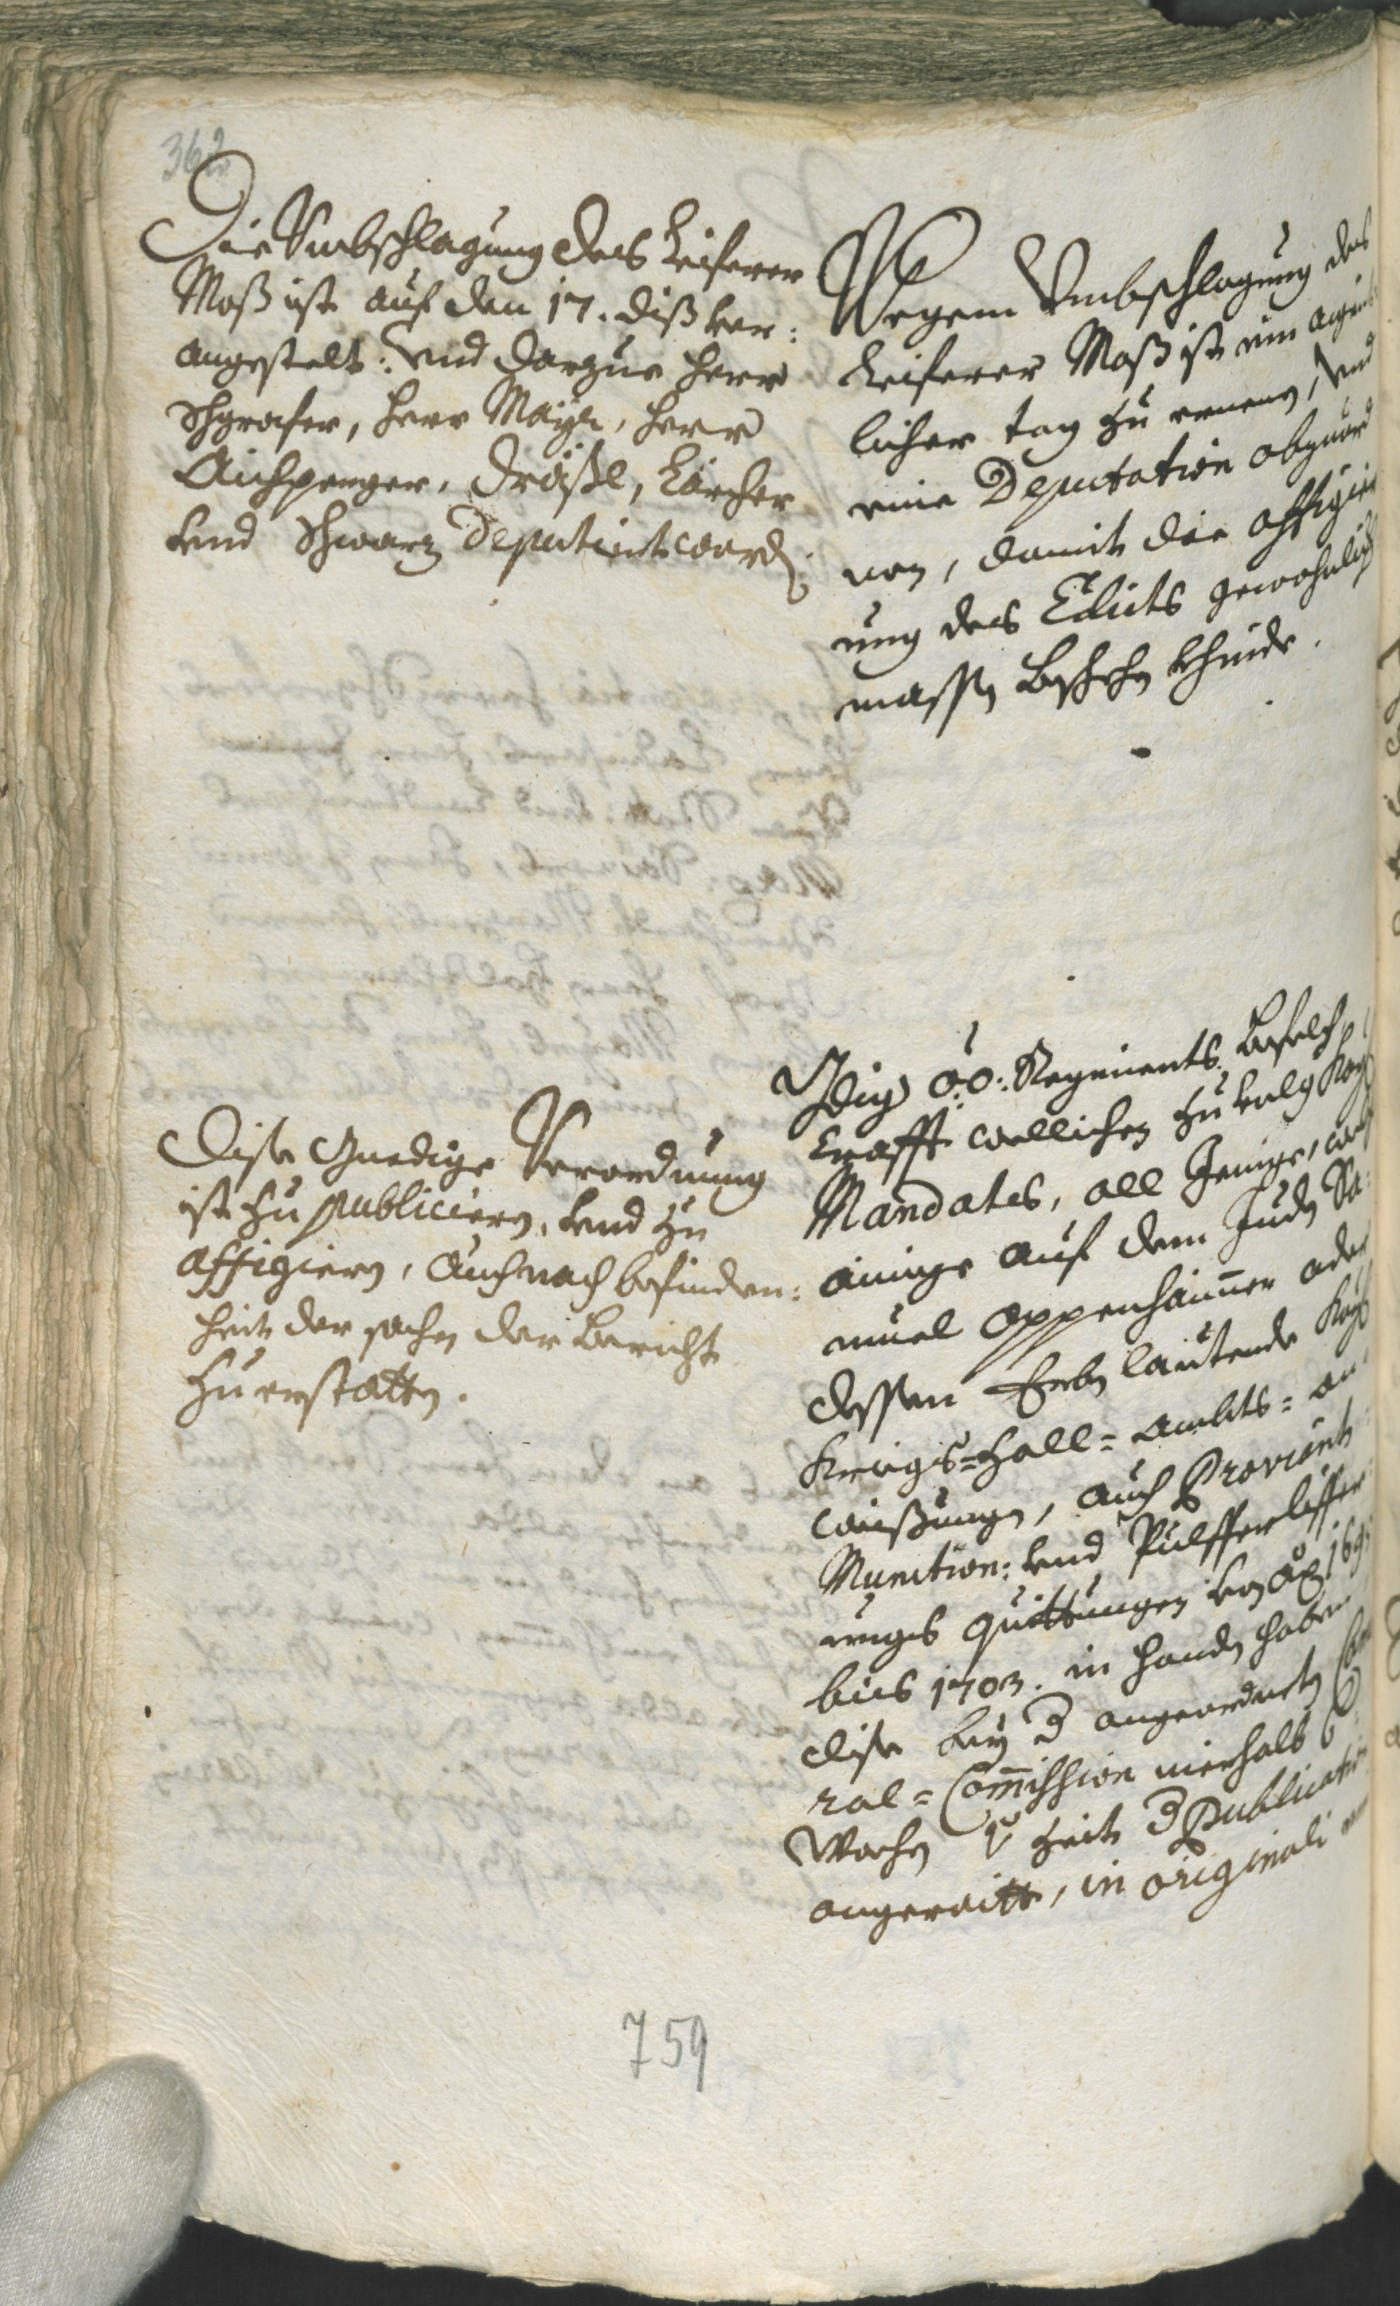 362
Die Vmbschlagung des Leiferer
Moß ist auf den 17. diß ver:
angestelt: Vnd darzue Herr
Schgrafer, Herr Mayr, Herr
Aichperger, Dräxl, Kircher
vnd Schwarz Deputiert word.
Wegen Vmbschlagung des
Leiferer Moß ist ein aigent
licher tag zu ernenen, Vnd
eine Deputation abzuord
nen, damit die affigier
ung des Edicts gewohnlich
massen beschehen khinde.
Dise Gnedige Verordnung
ist zu publiciern, vnd zu
affigiern, Auch nach befinden:
heit der sachen der Bericht
zu erstatten.
O: Ö: Regiments Befelch,
Crafft wellichen zu volg Kay
Mandates, all Jenige, welche
ainige auf dem Juden Sa:
muel Oppenhaimer oder
dessen Erben lautende Kay
Kriegs-Zall-Ambts-an
weißungen, auch Proviant
Munition: vnd Pulffer liffer
ungs Quittungen von Ao 169
bis 1703. in handen haben
dise bey d angeordneten
ral-Commission inerhalb 6
Wochen zeit d publication
angeraitt, in originali
759